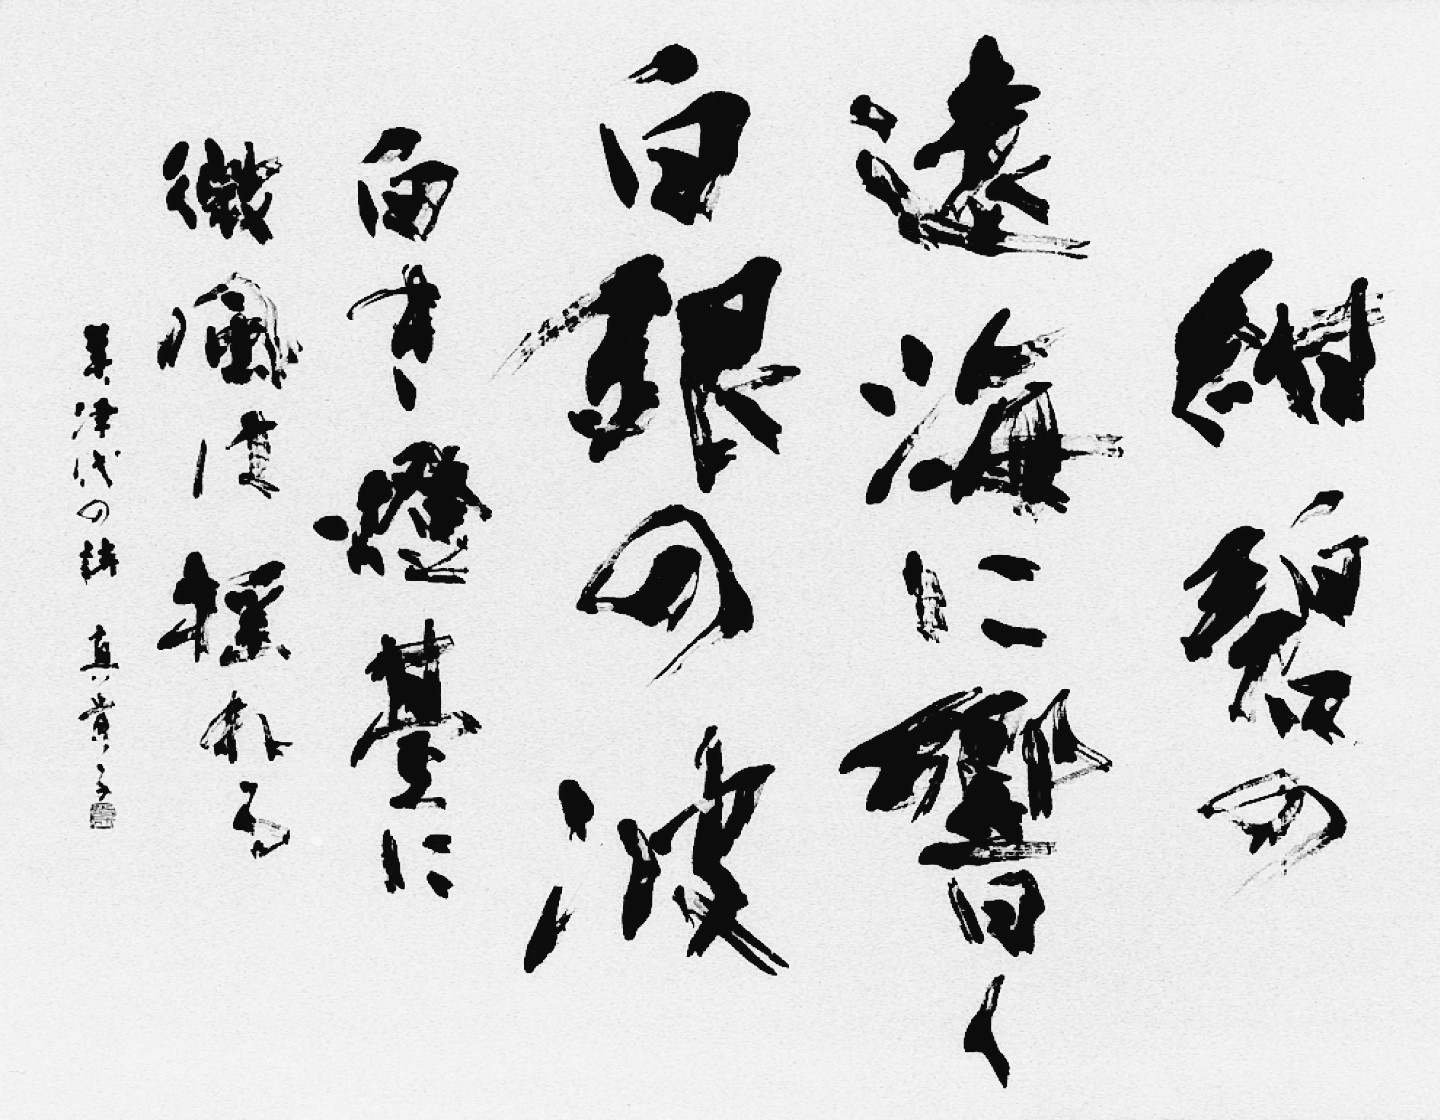 紺碧の
遠海に響く
白銀の波
白き燈臺に
微風は揺れる
津代の詩 真貴子